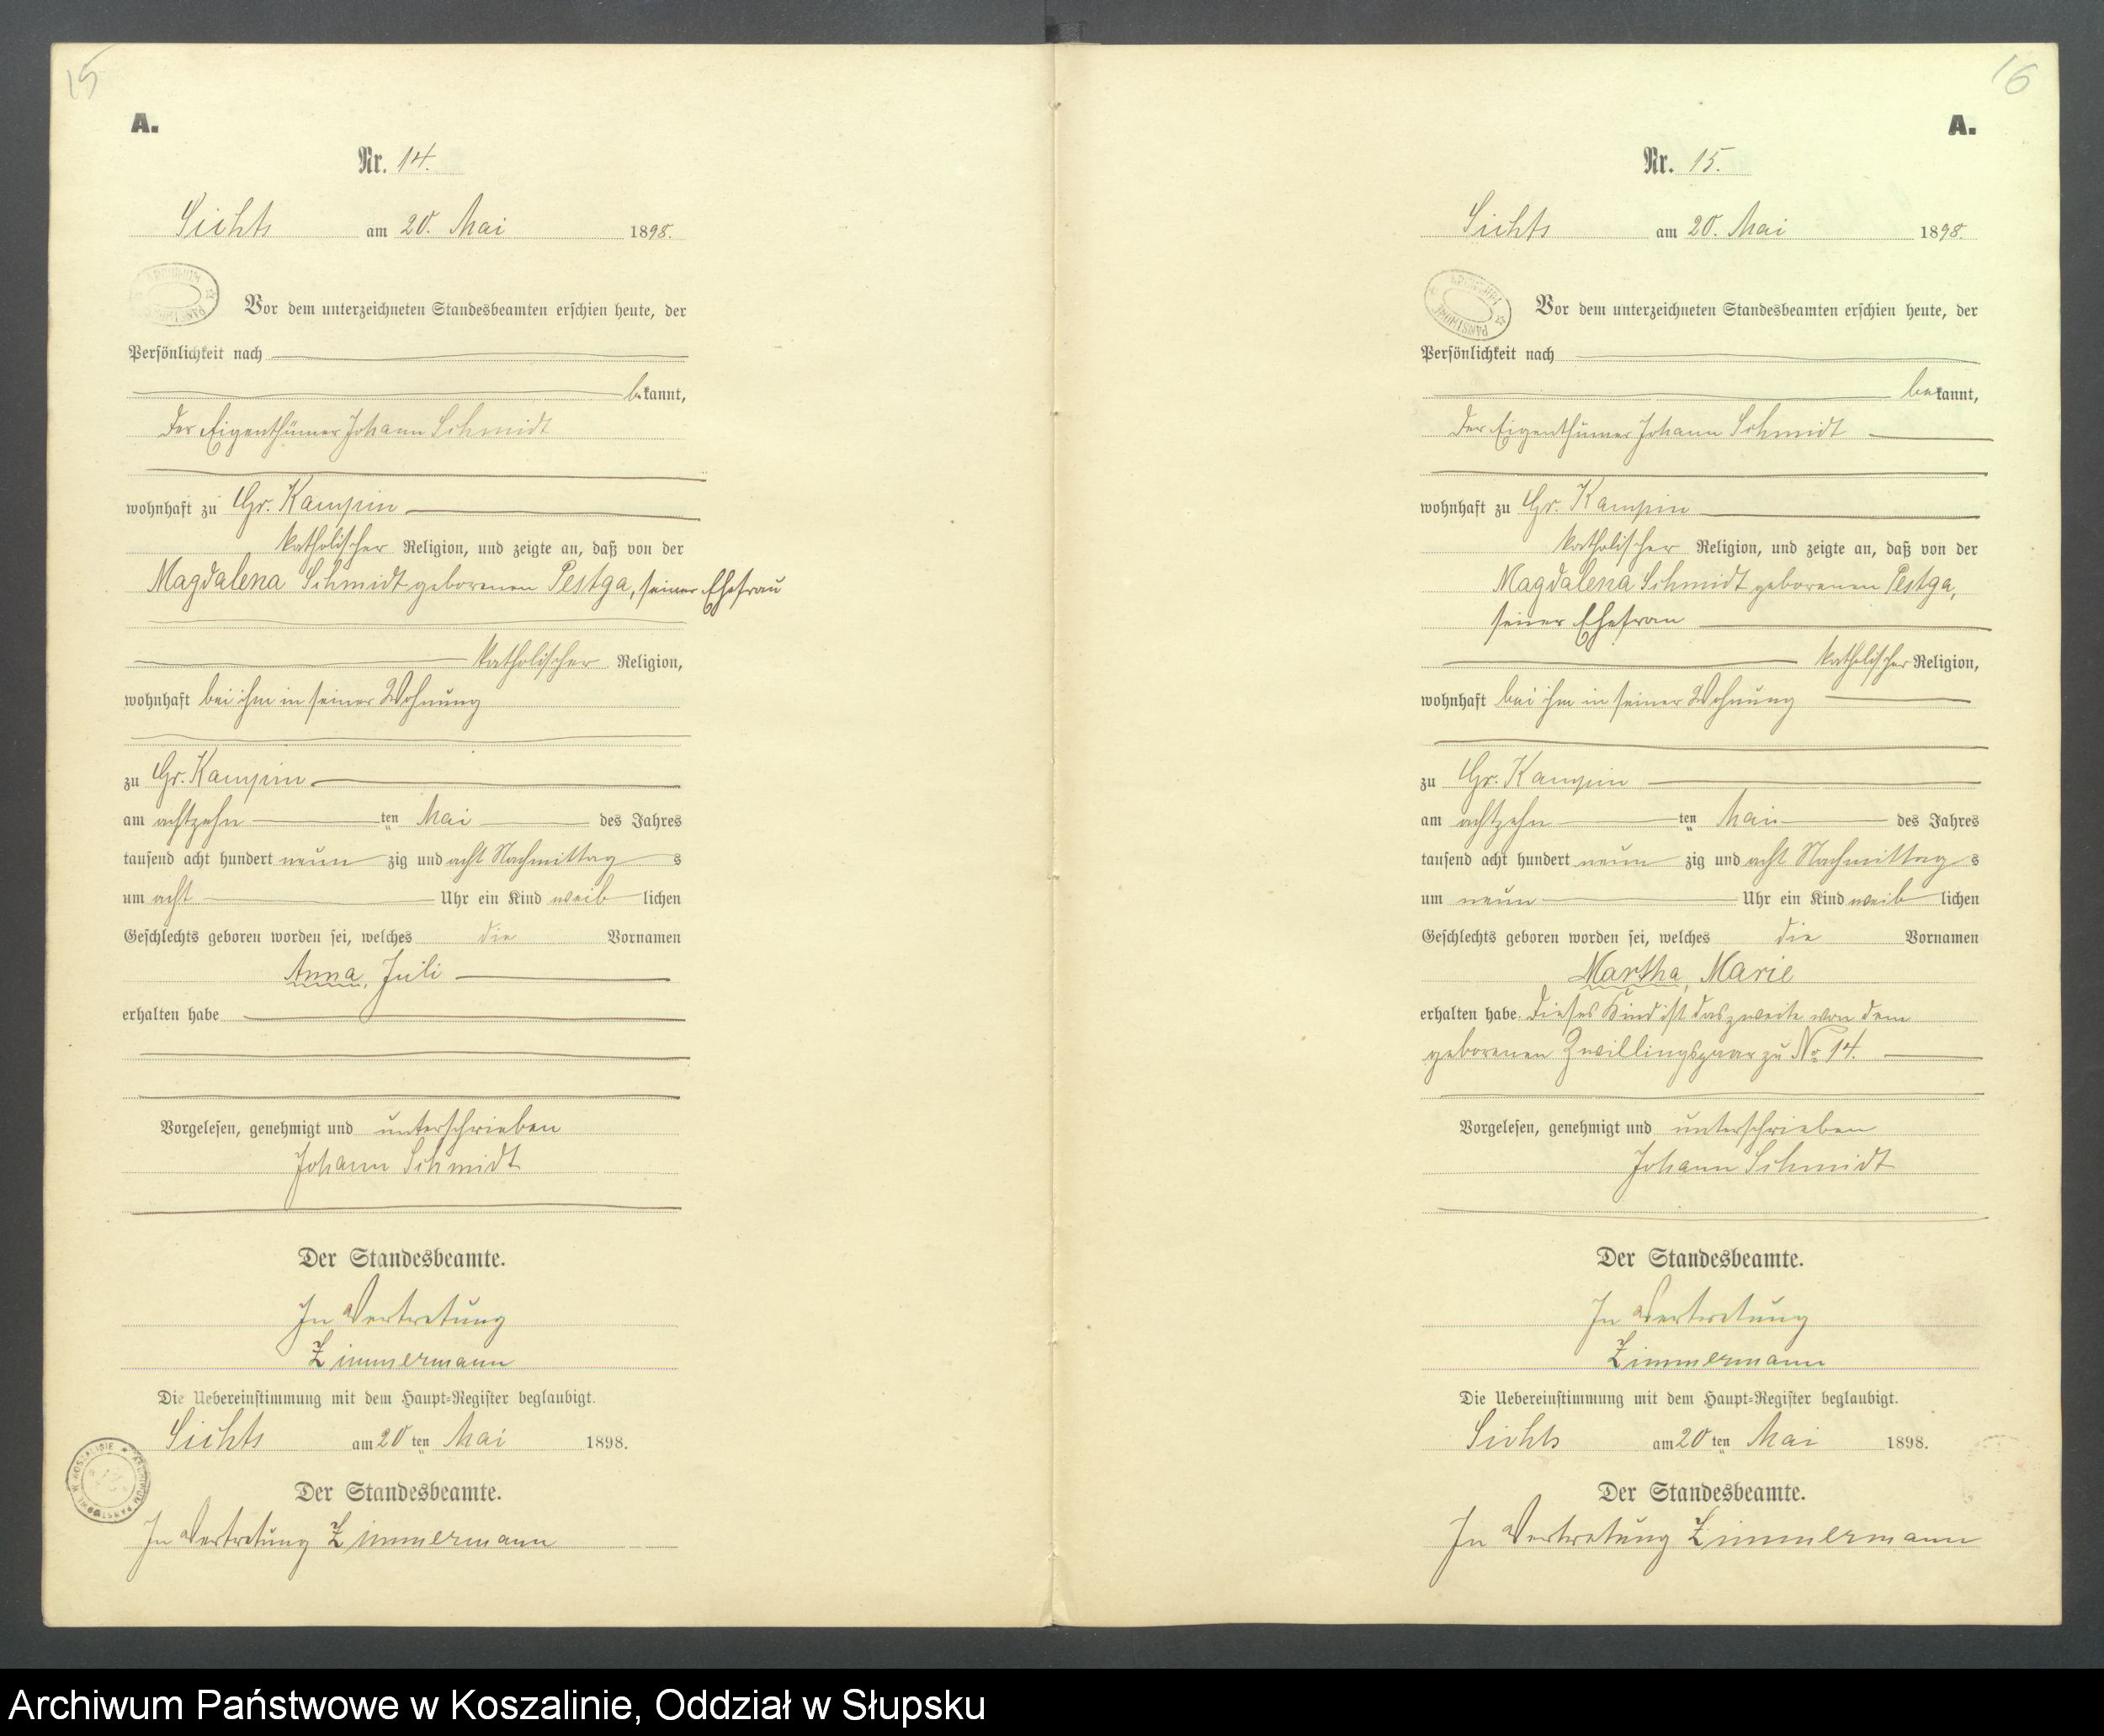 15
A.
Nr. 14.
Lichts am 20. Mai 1898.
Vor dem unterzeichneten Standesbeamten erschien heute, der
Persönlichkeit nach
bekannt,
der Eigenthümer Johann Schmidt
wohnhaft zu Gr. Kampin
katholischer Religion, und zeigte an, daß von der
Magdalena Schmidt geborenen Pestga, seiner Ehefrau
katholischer Religion,
wohnhaft bei ihm in seiner Wohnung
zu Gr. Kampin
am achtzehn ten Mai des Jahres
tausend acht hundert neun zig und acht Nachmittag s
um acht Uhr ein Kind weib lichen
Geschlechts geboren worden sei, welches die Vornamen
Anna, Juli
erhalten habe
Vorgelesen, genehmigt und unterschrieben
Johann Schmidt
Der Standesbeamte.
In Vertretung
Zimmermann
Die Uebereinstimmung mit dem Haupt-Register beglaubigt.
Lichts am 20 ten Mai 1898.
Der Standesbeamte.
In Vertretung Zimmermann
16
A.
Nr. 15.
Lichts am 20. Mai 1898.
Vor dem unterzeichneten Standesbeamten erschien heute, der
Persönlichkeit nach
bekannt,
der Eigenthümer Johann Schmidt
wohnhaft zu Gr. Kampin
katholischer Religion, und zeigte an, daß von der
Magdalena Schmidt geborenen Pestga,
seiner Ehefrau
katholischer Religion,
wohnhaft bei ihm in seiner Wohnung
zu Gr. Kampin
am achtzehn ten Mai des Jahres
tausend acht hundert neun zig und acht Nachmittag s
um neun Uhr ein Kind weib lichen
Geschlechts geboren worden sei, welches die Vornamen
Martha, Marie
erhalten habe. Dieses Kind ist das zweite von dem
geborenen Zwillingspaar zu No 14.
Vorgelesen, genehmigt und unterschrieben
Johann Schmidt
Der Standesbeamte.
In Vertretung
Zimmermann
Die Uebereinstimmung mit dem Haupt-Register beglaubigt.
Lichts am 20 ten Mai 1898.
Der Standesbeamte.
In Vertretung Zimmermann
Archiwum Państwowe w Koszalinie, Oddział w Słupsku